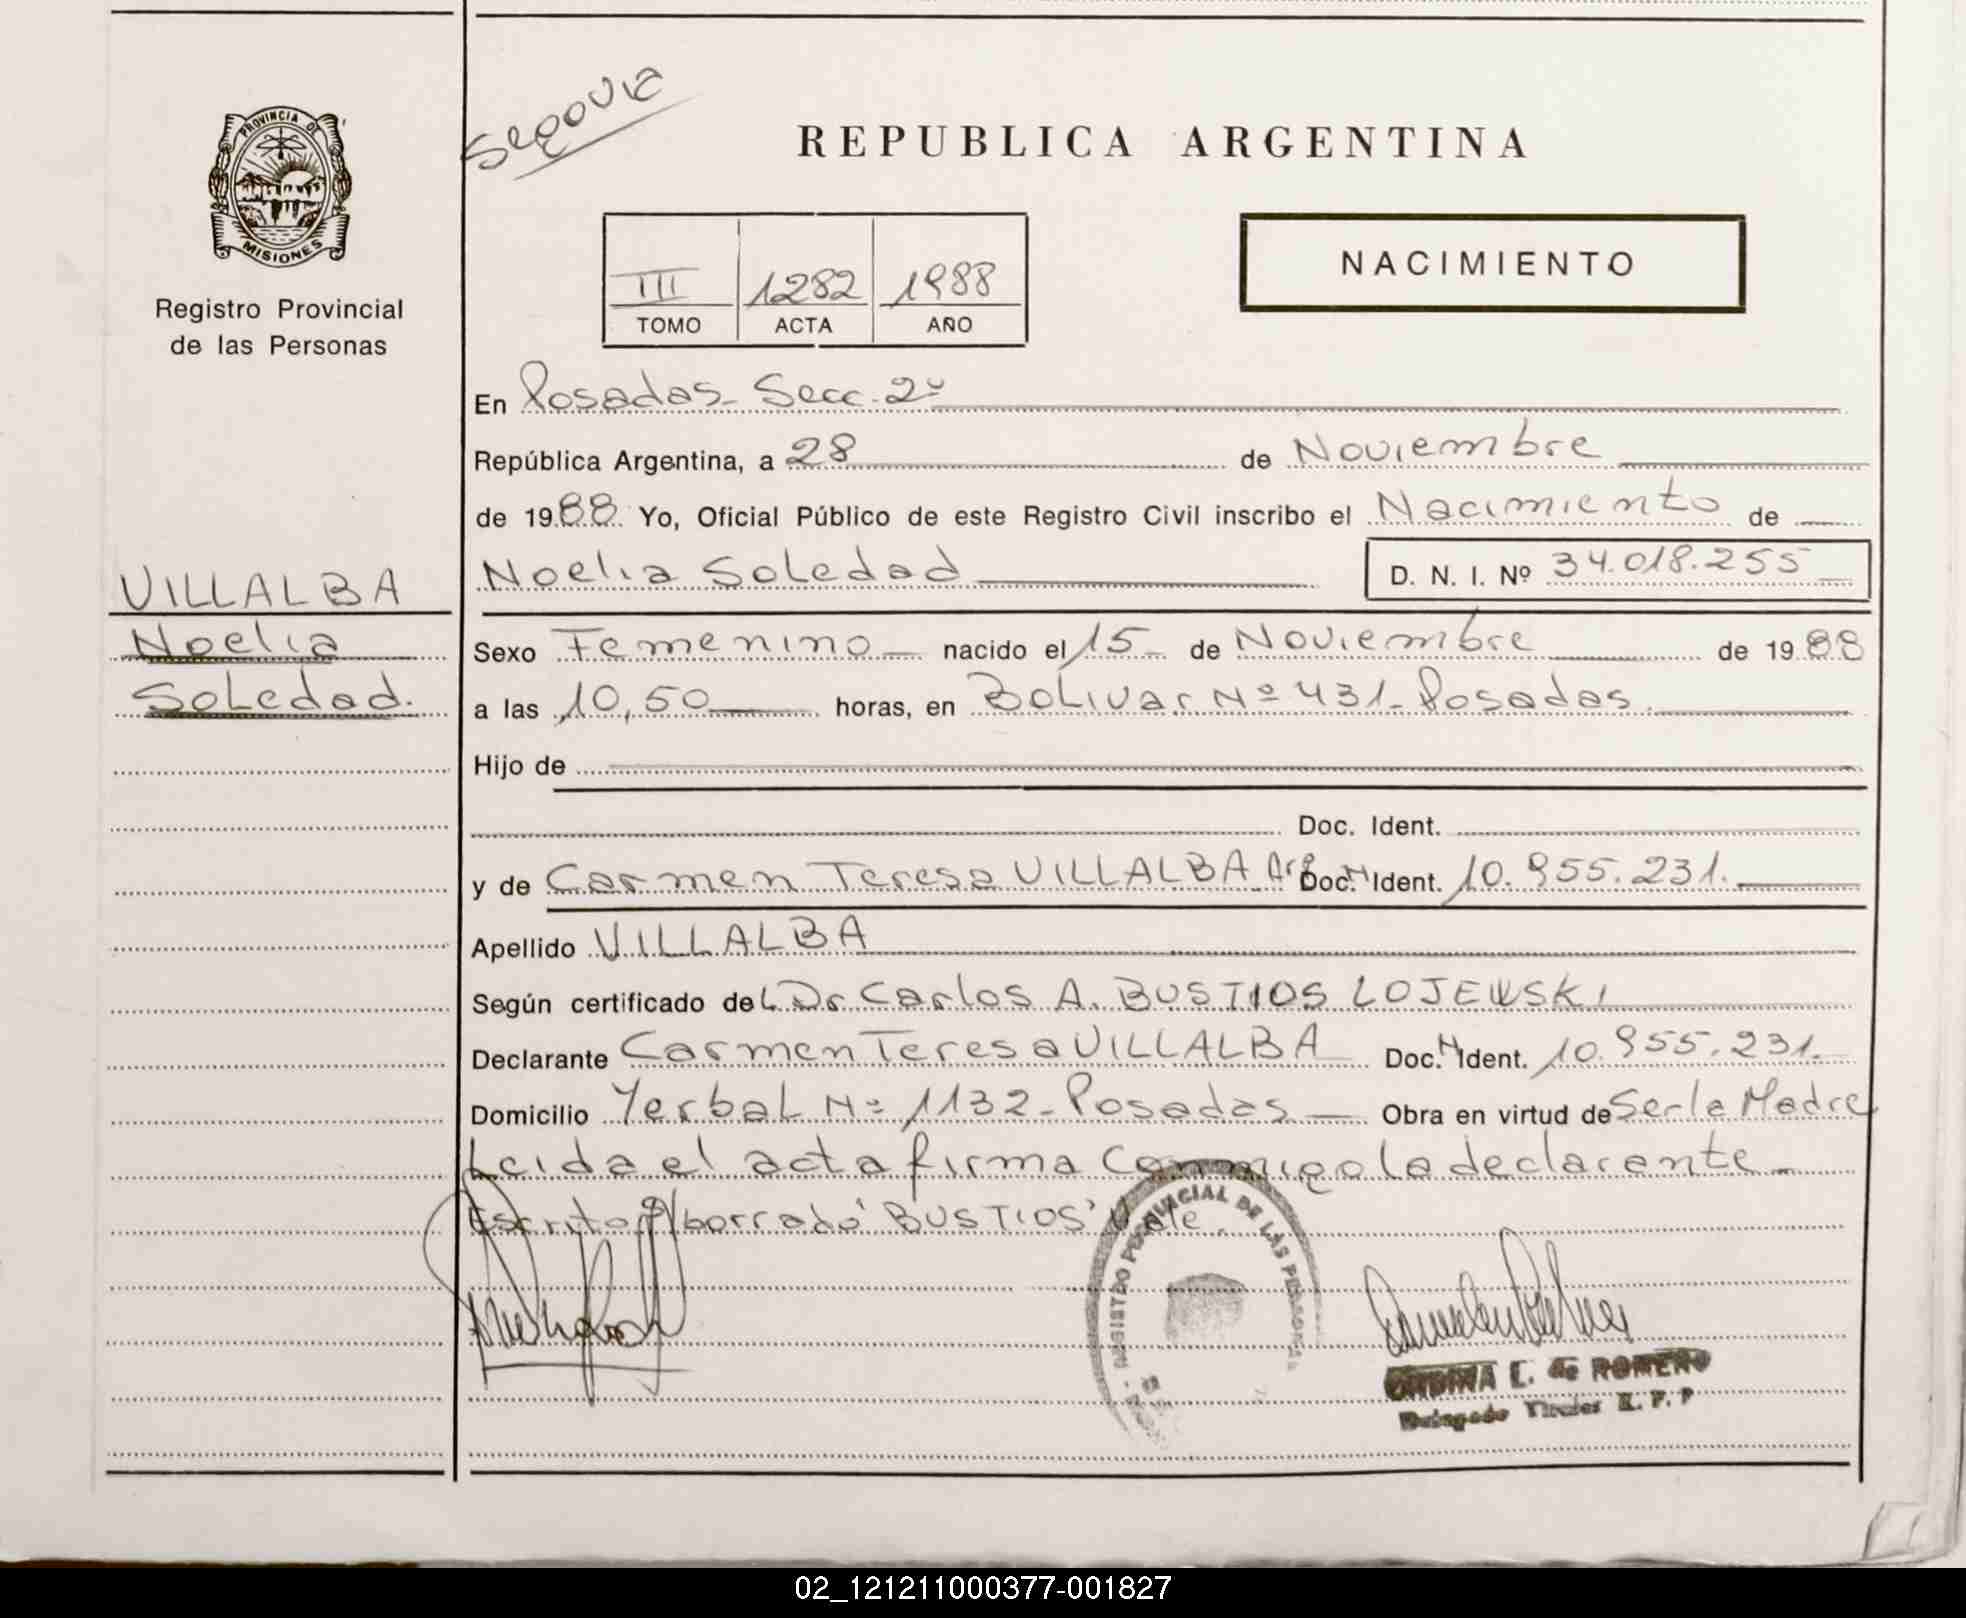 Segovia
PROVINCIA DE
MISIONES
Registro Provincial
de las Personas
REPUBLICA ARGENTINA
NACIMIENTO
III 1282 1988
TOMO ACTA AÑO
En Posadas - Secc. 2º
República Argentina, a 28 de Noviembre
de 1988 Yo, Oficial Público de este Registro Civil inscribo el Nacimiento de
Noelia Soledad D. N. I. Nº 34.018.255
VILLALBA
Noelia
Soledad.
Sexo Femenino nacido el 15 de Noviembre de 1988
a las 10,50 horas, en Bolivar Nº 431 - Posadas
Hijo de
Doc. Ident.
y de Carmen Teresa VILLALBA Arg. Doc. Ident. 10.955.231.
Apellido VILLALBA
Según certificado del Dr Carlos A. BUSTIOS LOJEWSKI
Declarante Carmen Teresa VILLALBA Doc. Ident. 10.955.231.
Domicilio Yerbal Nº 1132 - Posadas Obra en virtud de Ser la Madre
Leida el acta firma conmigo la declarante
Escrito s/borrado 'BUSTIOS' Vale.
REGISTRO PROVINCIAL DE LAS PERSONAS
E. de ROMERO
Delegado Titular R. P. P
02_121211000377-001827